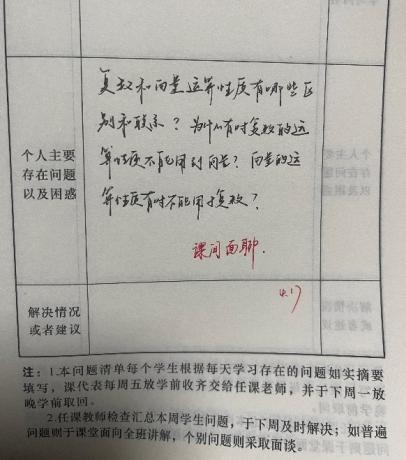 复数和向量运算性质有哪些区
别和联系？为什么有时复数的运
算性质不能用到向量？向量的运
算性质有时不能用于复数？
个人主要
存在问题
以及困惑
课间面聊.
4.17
解决情况
或者建议
注：1.本问题清单每个学生根据每天学习存在的问题如实摘要
填写，课代表每周五放学前收齐交给任课老师，并于下周一放
晚学前取回。
2.任课教师检查汇总本周学生问题，于下周及时解决；如普遍
问题则于课堂面向全班讲解，个别问题则采取面谈。